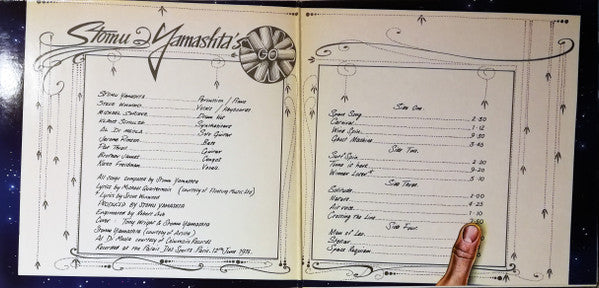 Stomu Yamashta's
GO
Stomu Yamashta Percussion / Piano
Steve Winwood Vocals / Keyboards
Michael Shrieve Drum Kit
Klaus Schulze Synthesizers
Al Di Meola Solo Guitar
Jerome Rimson Bass
Pat Thrall Guitar
Brother James Congas
Karen Friedman Vocals
All songs composed by Stomu Yamashta
Lyrics by Michael Quartermain (courtesy of Fleeting Music Ltd)
* Lyrics by Steve Winwood
Produced by Stomu Yamashta
Engineered by Robert Ash
Cover : Tony Wright & Stomu Yamashta
Stomu Yamashta (courtesy of Arista)
Al Di Meola courtesy of Columbia Records
Recorded at the Palais Des Sports Paris. 12th June 1976.
Side One.
Space Song 2·30
Carnival 1·12
Wind Spin 9·30
Ghost Machine 3·45
Side Two.
Surf Spin 2·20
Time is here 9·20
Winner Loser * 5·10
Side Three.
Solitude 1·20
Nature 4·25
Air voice 1·10
Crossing the Line
Side Four.
Man of Leo
Stellar
Space Requiem